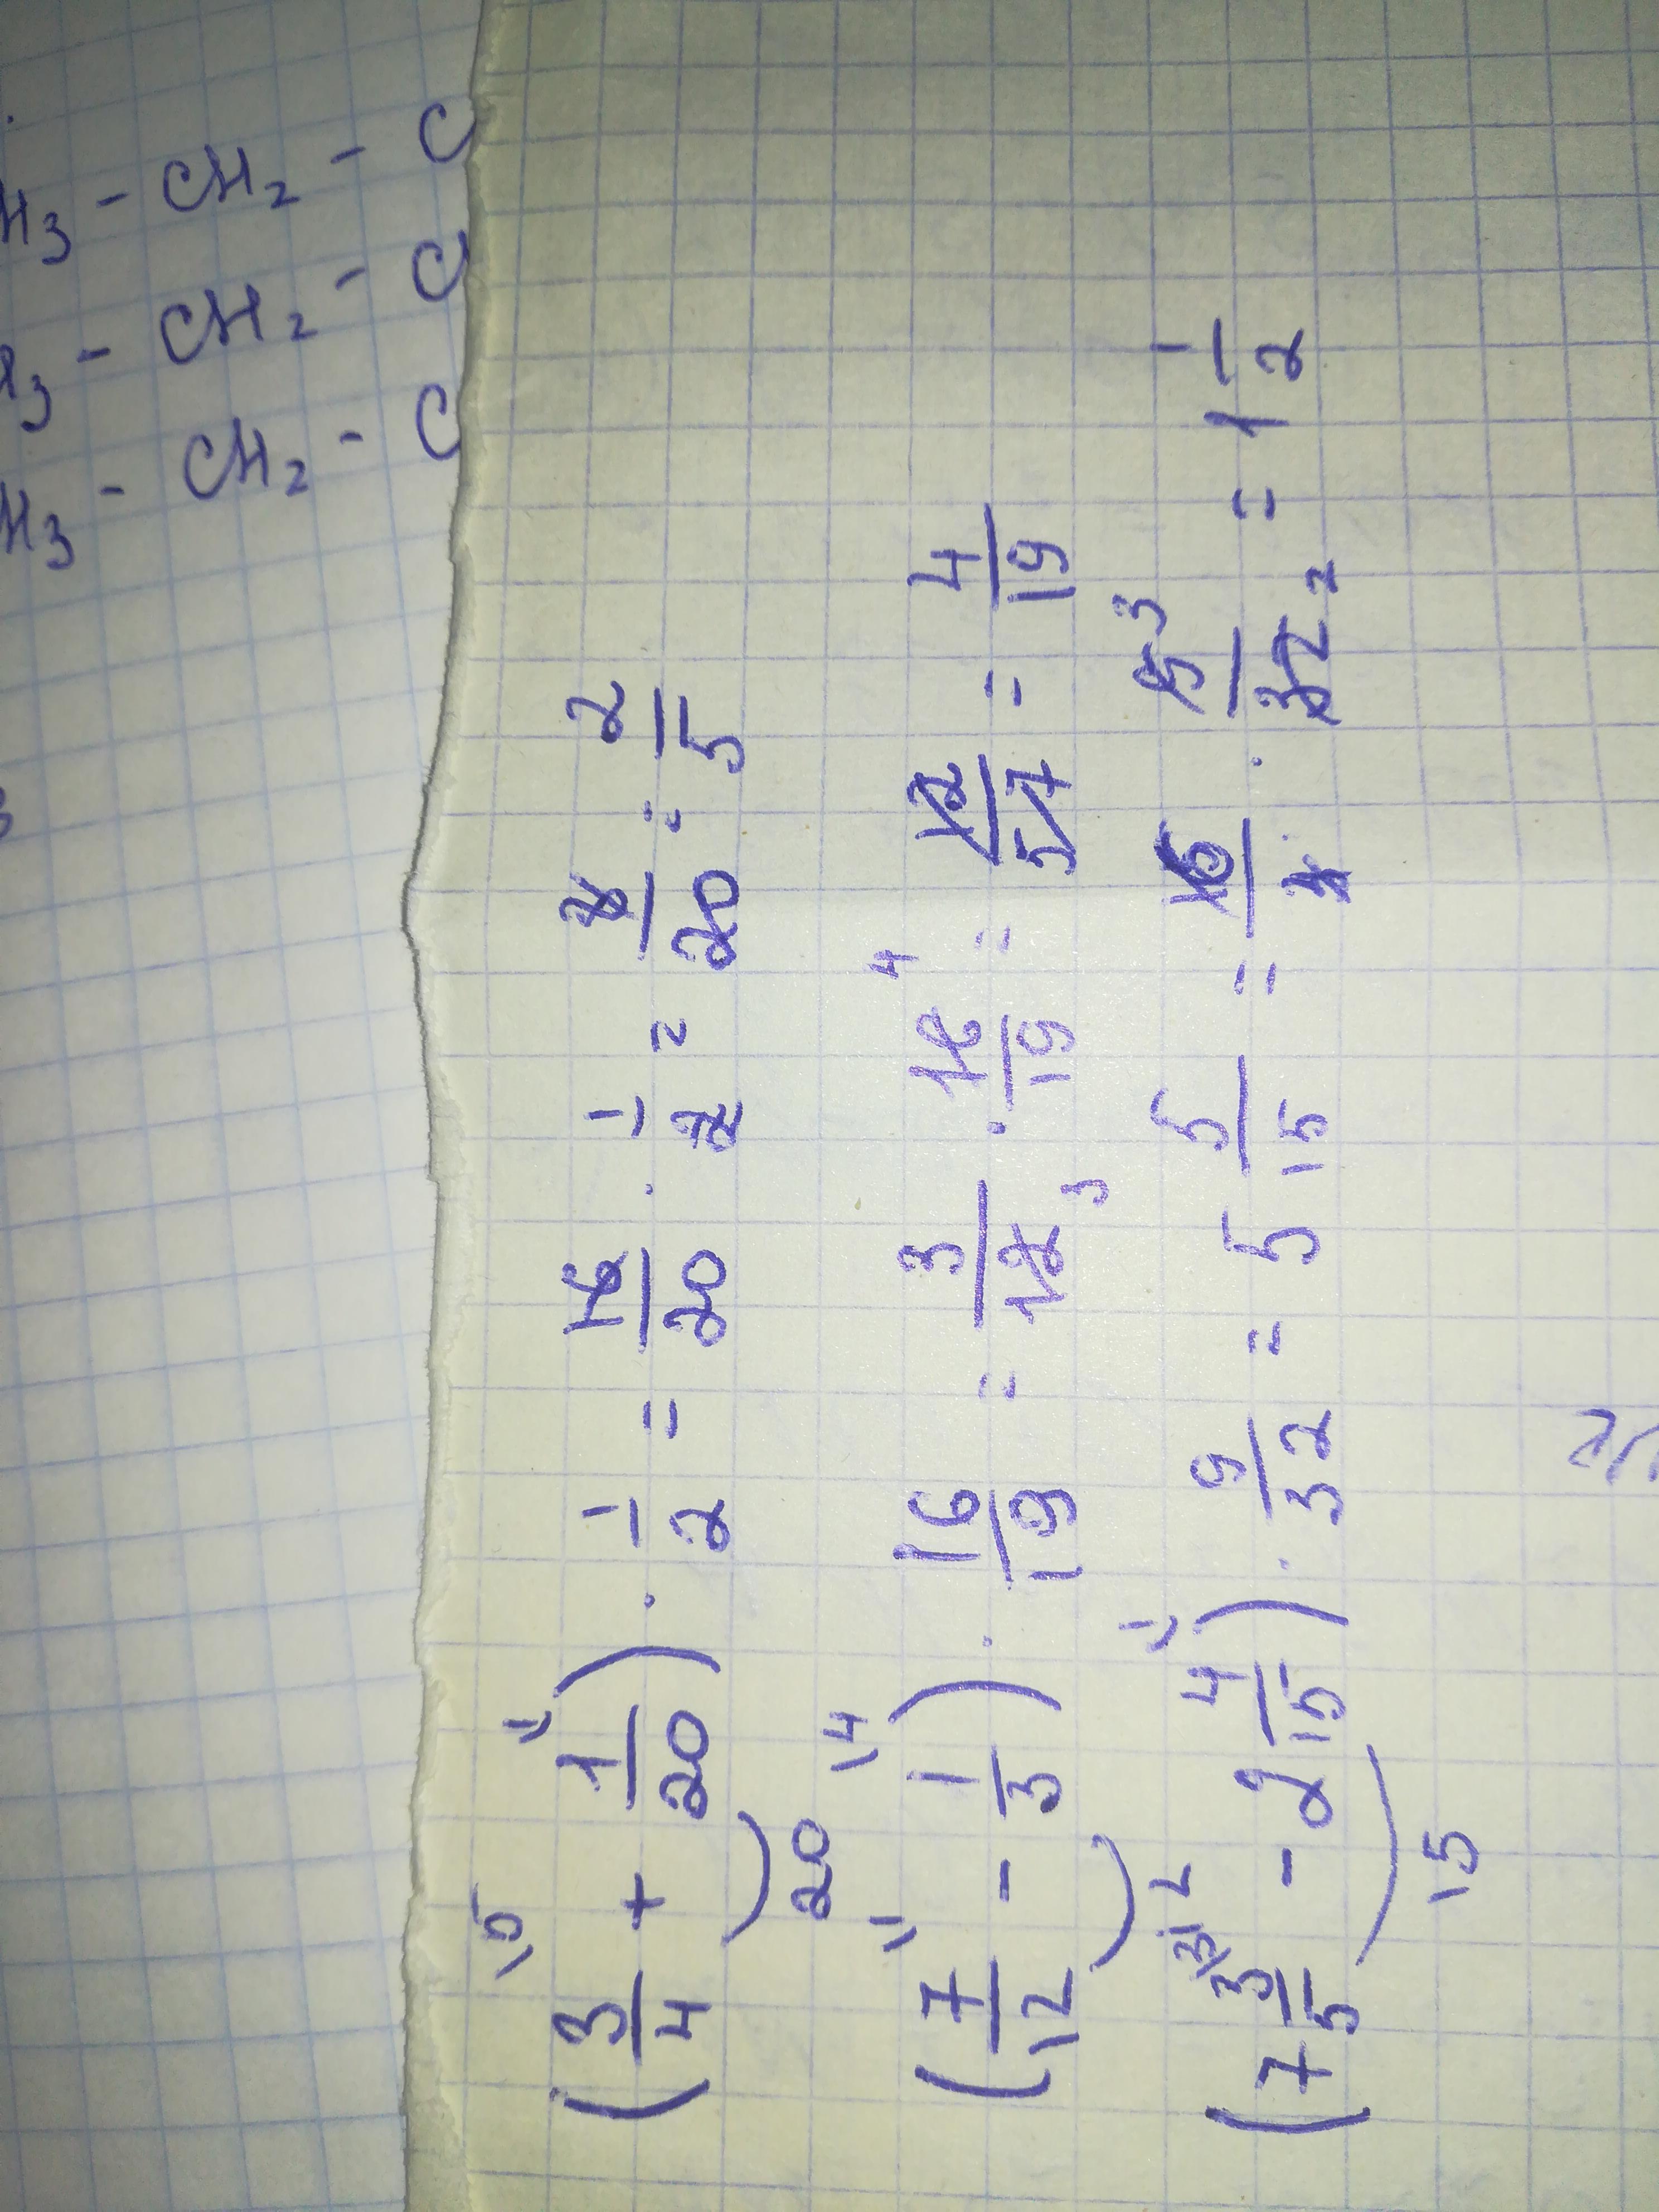 H3 - CH2 - C
3 - CH2 - C
H3 - CH2 - C
(3/4 \5 + 1/20 \1) · 1/2 = 16/20 · 1/2 = 8/20 = 2/5
20
(7/12 \1 - 1/3 \4) · 16/19 = 3/12 3 · 16/19 4 = 12/57 = 4/19
(7 3/5 \3 - 2 4/15 \1) · 9/32 = 5 5/15 = 16/3 · 9/32 2 3 = 1 1/2
15